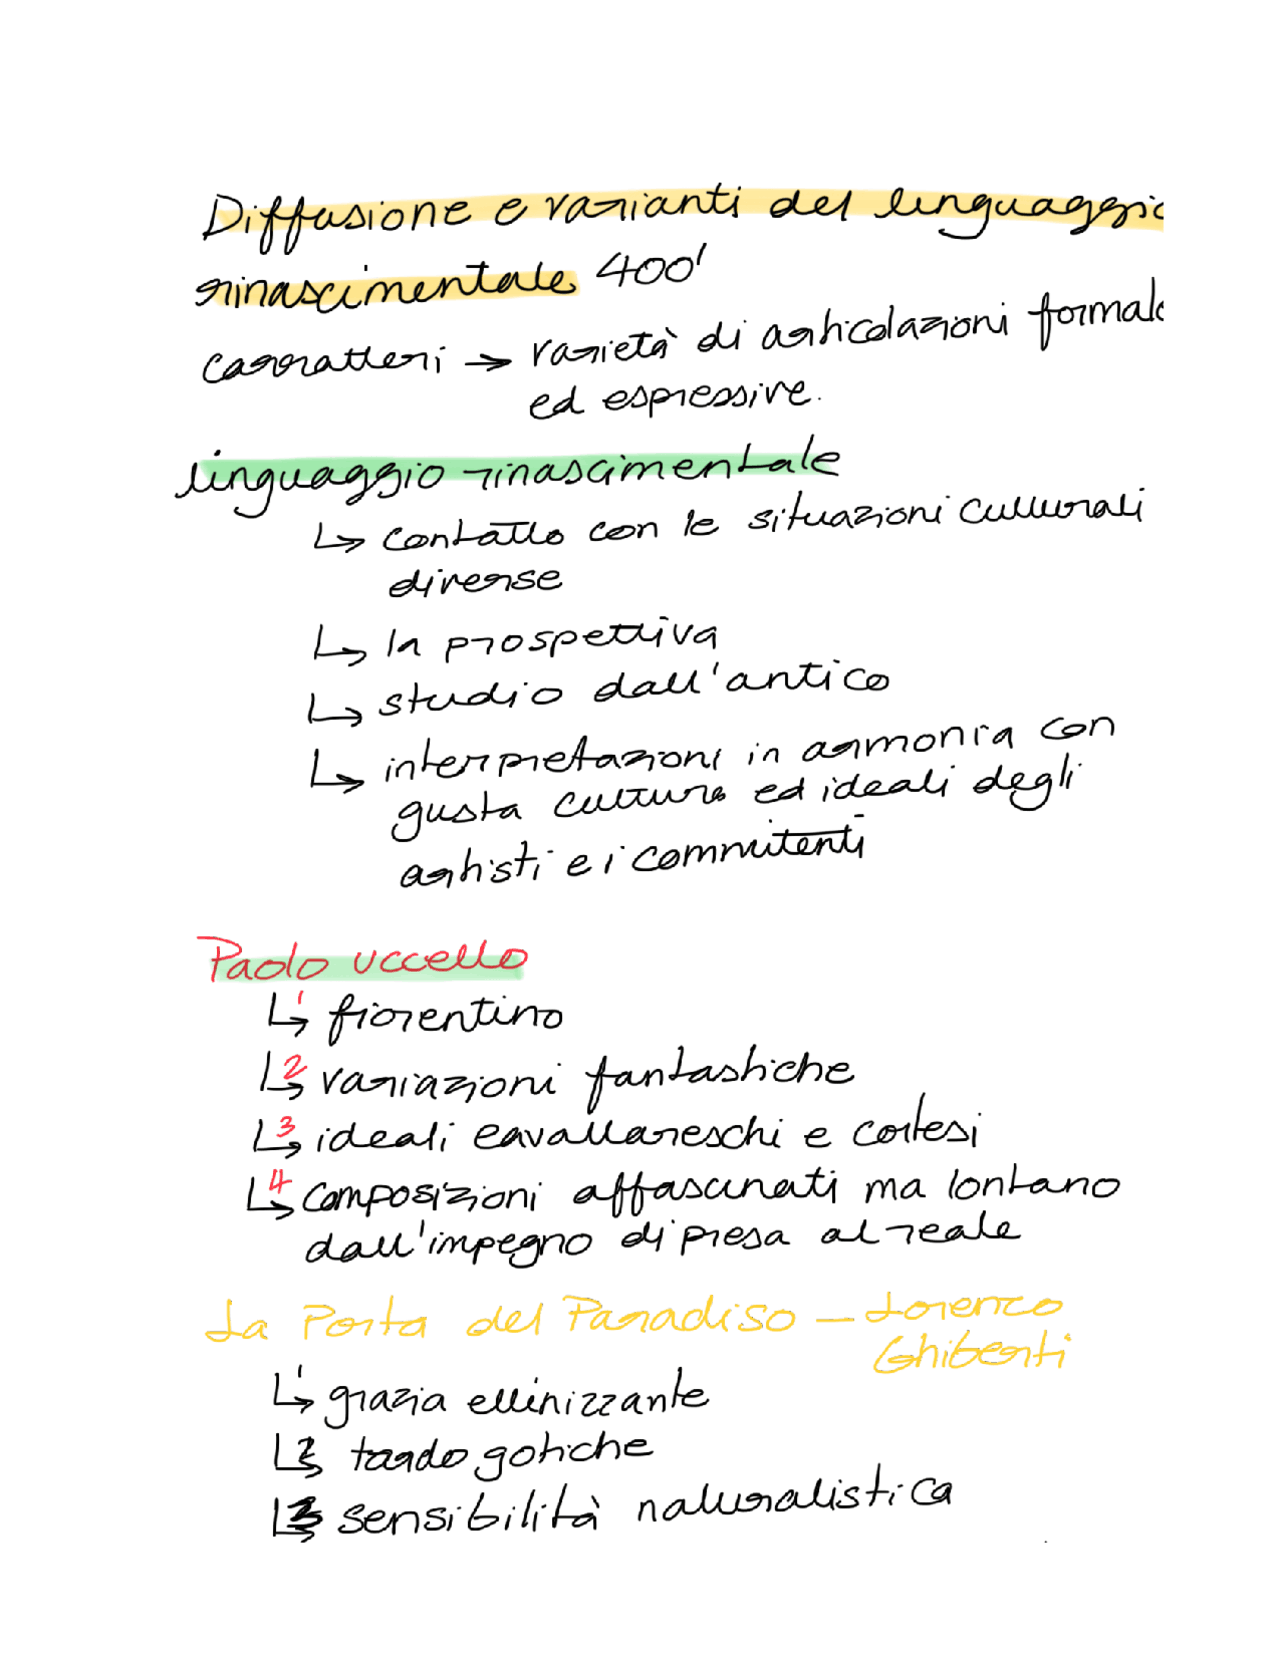 Diffusione e varianti del linguaggio
rinascimentale 400'
carratteri → varietà di articolazioni formale
ed espressive.
linguaggio rinascimentale
↳ contatto con le situazioni culturali
diverse
↳ la prospettiva
↳ studio dall'antico
↳ interpretazioni in armonia con
gusta cultura ed ideali degli
artisti e i committenti
Paolo uccello
↳ 1 fiorentino
↳ 2 variazioni fantastiche
↳ 3 ideali cavallareschi e cortesi
↳ 4 composizioni affascinati ma lontano
dall'impegno di presa al reale
La Porta del Paradiso — Lorenzo
Ghiberti
↳ 1 grazia ellinizzante
↳ 2 tardo gotiche
↳ 3 sensibilità naturalistica